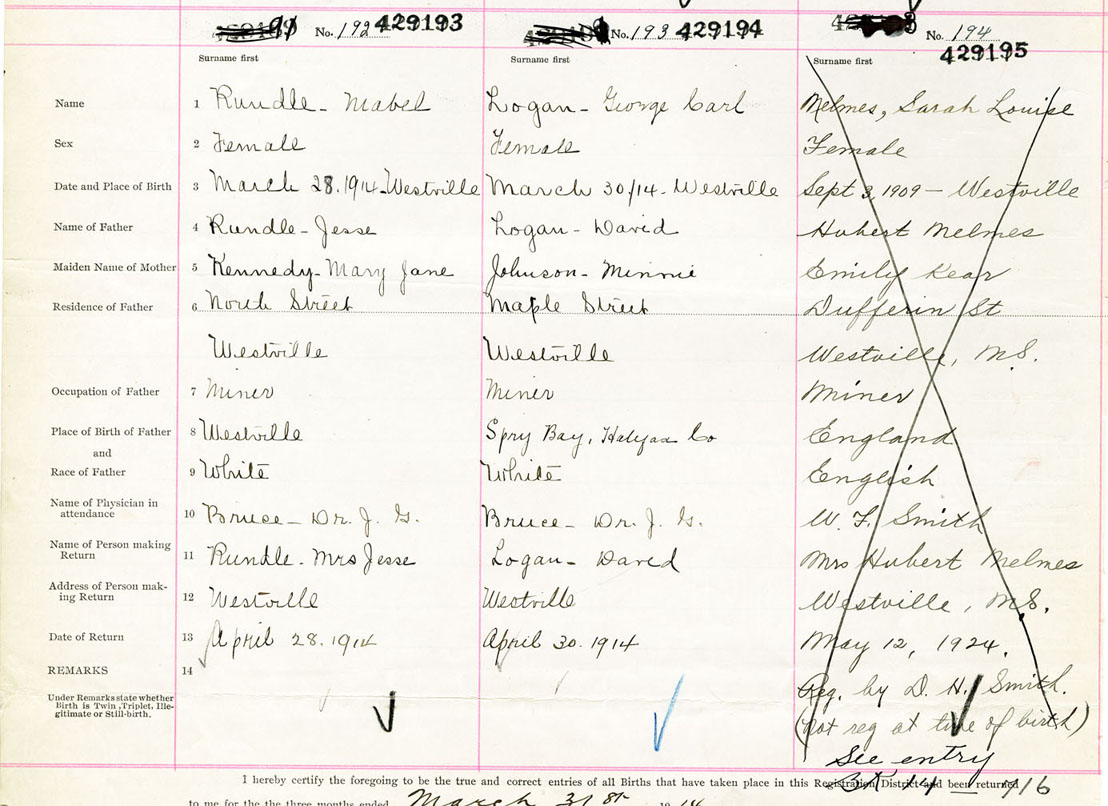 No. 192 429193 No. 193 429194 No. 194
429195
Surname first Surname first Surname first
Name 1 Rundle - Mabel Logan - George Carl Melmes, Sarah Louise
Sex 2 Female Female Female
Date and Place of Birth 3 March 28. 1914 - Westville March 30/14 - Westville Sept 3, 1909 - Westville
Name of Father 4 Rundle - Jesse Logan - David Hubert Melmes
Maiden Name of Mother 5 Kennedy - Mary Jane Johnson - Minnie Emily Kear
Residence of Father 6 North Street Maple Street Dufferin St
Westville Westville Westville, N.S.
Occupation of Father 7 Miner Miner Miner
Place of Birth of Father 8 Westville Spry Bay, Halifax Co England
and
Race of Father 9 White White English
Name of Physician in
attendance 10 Bruce - Dr. J. G. Bruce - Dr. J. G. W. F. Smith
Name of Person making
Return 11 Rundle - Mrs Jesse Logan - David Mrs Hubert Melmes
Address of Person mak-
ing Return 12 Westville Westville Westville, N.S.
Date of Return 13 April 28. 1914 April 30. 1914 May 12, 1924.
REMARKS 14
Under Remarks state whether
Birth is Twin, Triplet, Ille-
gitimate or Still-birth.
Reg. by D. H. Smith.
(not reg at time of birth)
See entry
I hereby certify the foregoing to be the true and correct entries of all Births that have taken place in this Registration District and been returned
to me for the the three months ended March 31st 1914